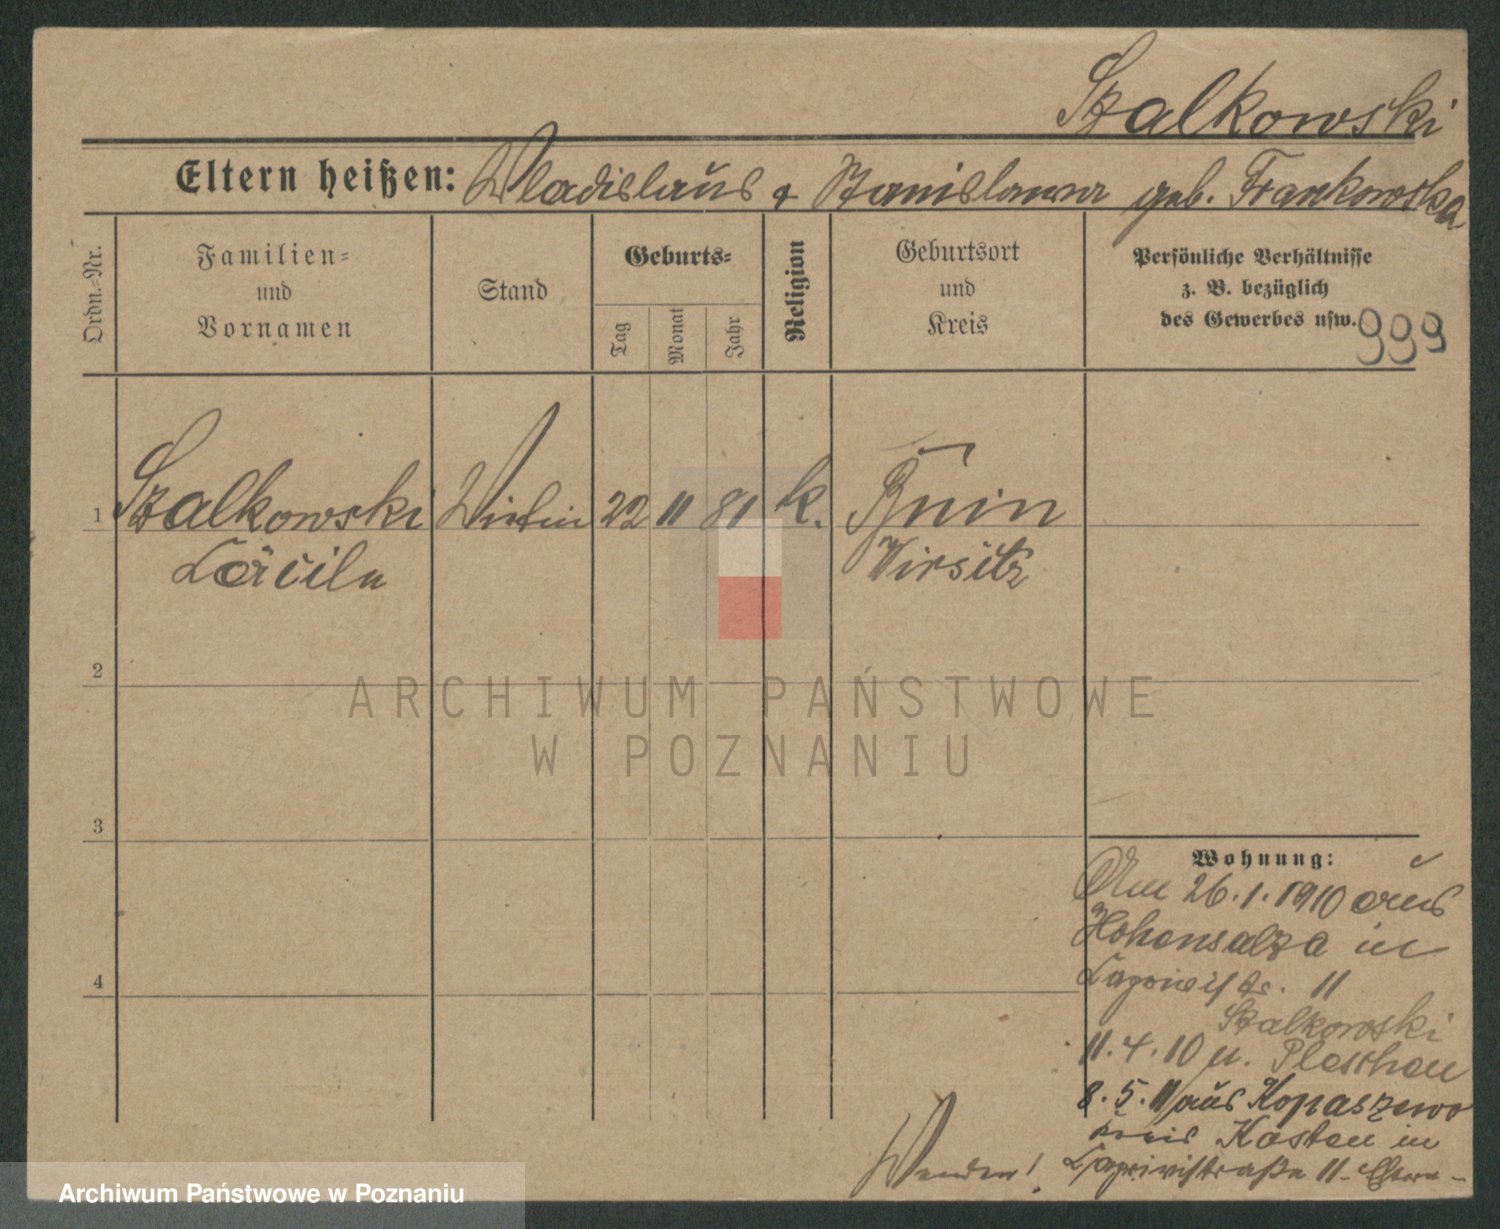 Szalkowski
Eltern heißen: Wladislaus & Stanislawa geb. Frankowska
Ordn.-Nr.
Familien-
und
Vornamen
Stand
Geburts-
Tag
Monat
Jahr
Religion
Geburtsort
und
Kreis
Persönliche Verhältnisse
z. B. bezüglich
des Gewerbes usw.
999
1 Szalkowski Wirtin 22 11 81 k. Bnin
Cäcilie Wirsitz
2
3
4
Wohnung:
Am 26.1.1910 aus
Hohensalza in
11
Szalkowski
11.4.10 n. Pleschen
8.5.11 aus Kopaszewo
Kreis Kosten in
11 Eltern
Wenden!
ARCHIWUM PAŃSTWOWE
W POZNANIU
Archiwum Państwowe w Poznaniu